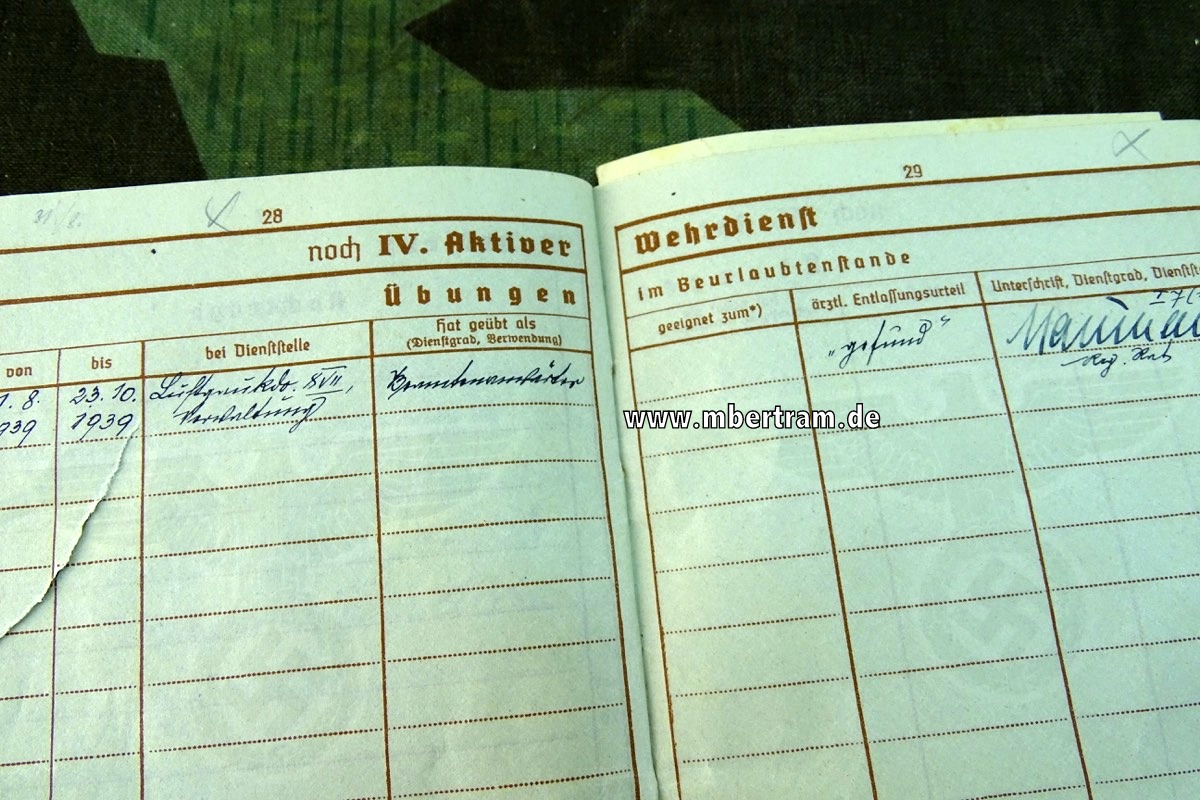 28
noch IV. Aktiver
Übungen
von
bis
bei Dienststelle
Hat geübt als
(Dienstgrad, Verwendung)
1. 8.
23. 10.
Luftgaukdo. XVII,
Beamtenanwärter
939
1939
Verwaltung
29
Wehrdienst
im Beurlaubtenstande
geeignet zum*)
ärztl. Entlassungsurteil
Unterschrift, Dienstgrad, Dienstst
„gesund“
Reg. Rat
www.mbertram.de